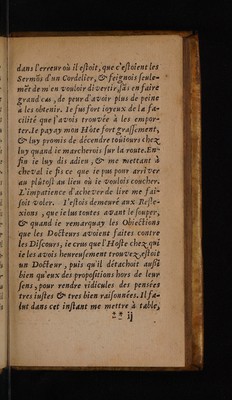 dans l'erreur où il estoit, que c'estoient les
Sermõs d'un Cordelier, & feignois seule-
mẽt de m'en vouloir divertir, sãs en faire
grand cas, de peur d'avoir plus de peine
à les obtenir. Ie fus fort ioyeux de la fa-
cilité que i'avois trouvée à les empor-
ter. Ie payay mon Hôte fort grassement,
& luy promis de décendre toûiours chez
luy quand ie marcherois sur la route. En-
fin ie luy dis adieu, & me mettant à
cheval ie fis ce que ie pus pour arriver
au plûtost au lieu où ie voulois concher.
L'impatience d'achever de lire me fai-
soit voler. I'estois demeuré aux Refle-
xions, que ie lus toutes avant le souper,
& quand ie remarquay les Obiections
que les Docteurs avoient faites contre
les Discours, ie crus que l'Hoste chez qui
ie les avois heureusement trouvez, estoit
un Docteur, puis qu'il détachoit aussi
bien qu'eux des propositions hors de leur
sens, pour rendre ridicules des pensées
tres iustes & tres bien raisonnées. Il fa-
lut dans cet instant me mettre à table,
** ij